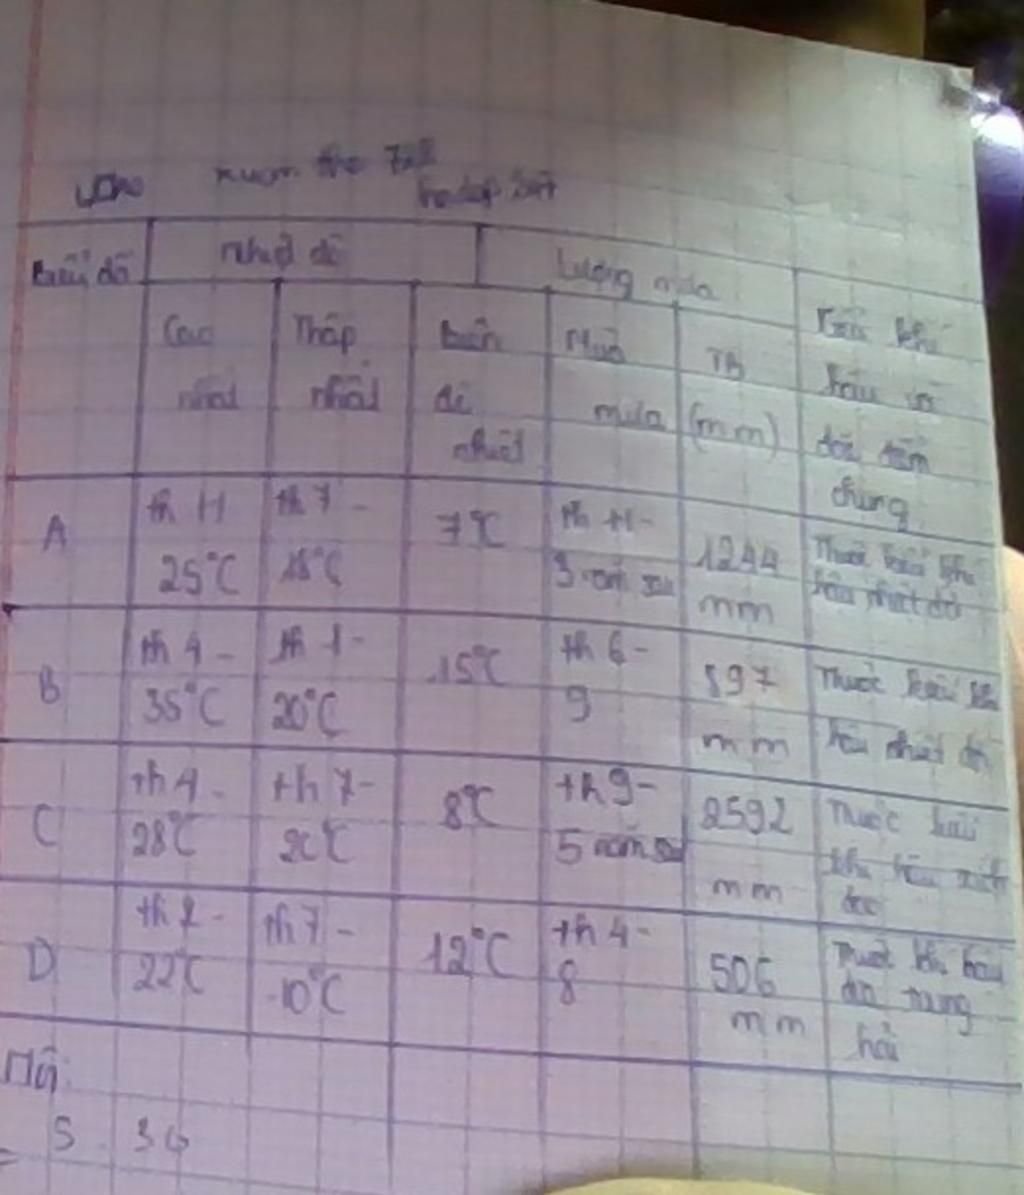 Biểu đồ
nhiệt độ
Lượng mưa
Cao nhất
Thấp nhất
biên độ nhiệt
Mùa mưa
TB (mm)
Kiểu khí
đặc điểm
chung
A
th 11
25°C
th 7 -
18°C
7°C
th 11 -
3 năm sau
1244
mm
Thuộc kiểu khí
hậu nhiệt đới
B
th 4 -
35°C
th 1 -
20°C
15°C
th 6 -
9
897
mm
Thuộc kiểu khí
hậu nhiệt đới
C
th 4 -
28°C
th 7 -
20°C
8°C
th 9 -
5 năm sau
2592
mm
Thuộc kiểu
khí hậu xích
đạo
D
th 2 -
22°C
th 7 -
10°C
12°C
th 4 -
8
506
mm
Thuộc khí hậu
địa trung
hải
S 36